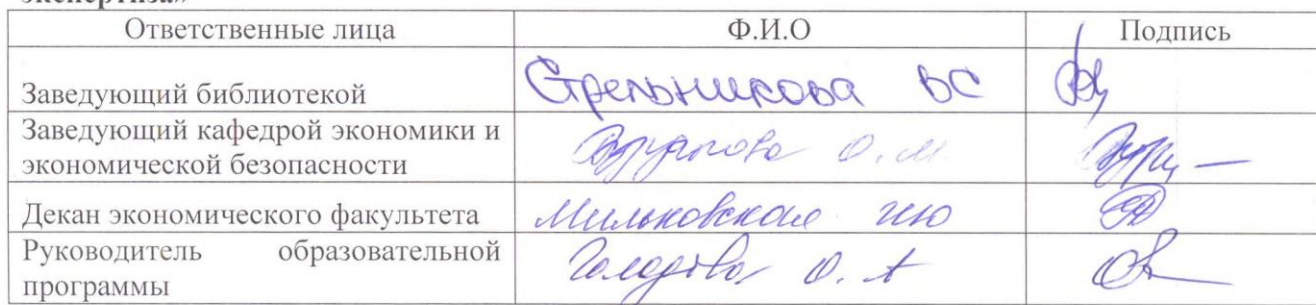 экспертиза»
Ответственные лица Ф.И.О Подпись
Заведующий библиотекой Стрельникова ВС
Заведующий кафедрой экономики и
экономической безопасности О.М
Декан экономического факультета Мильковская
Руководитель образовательной
программы О.А